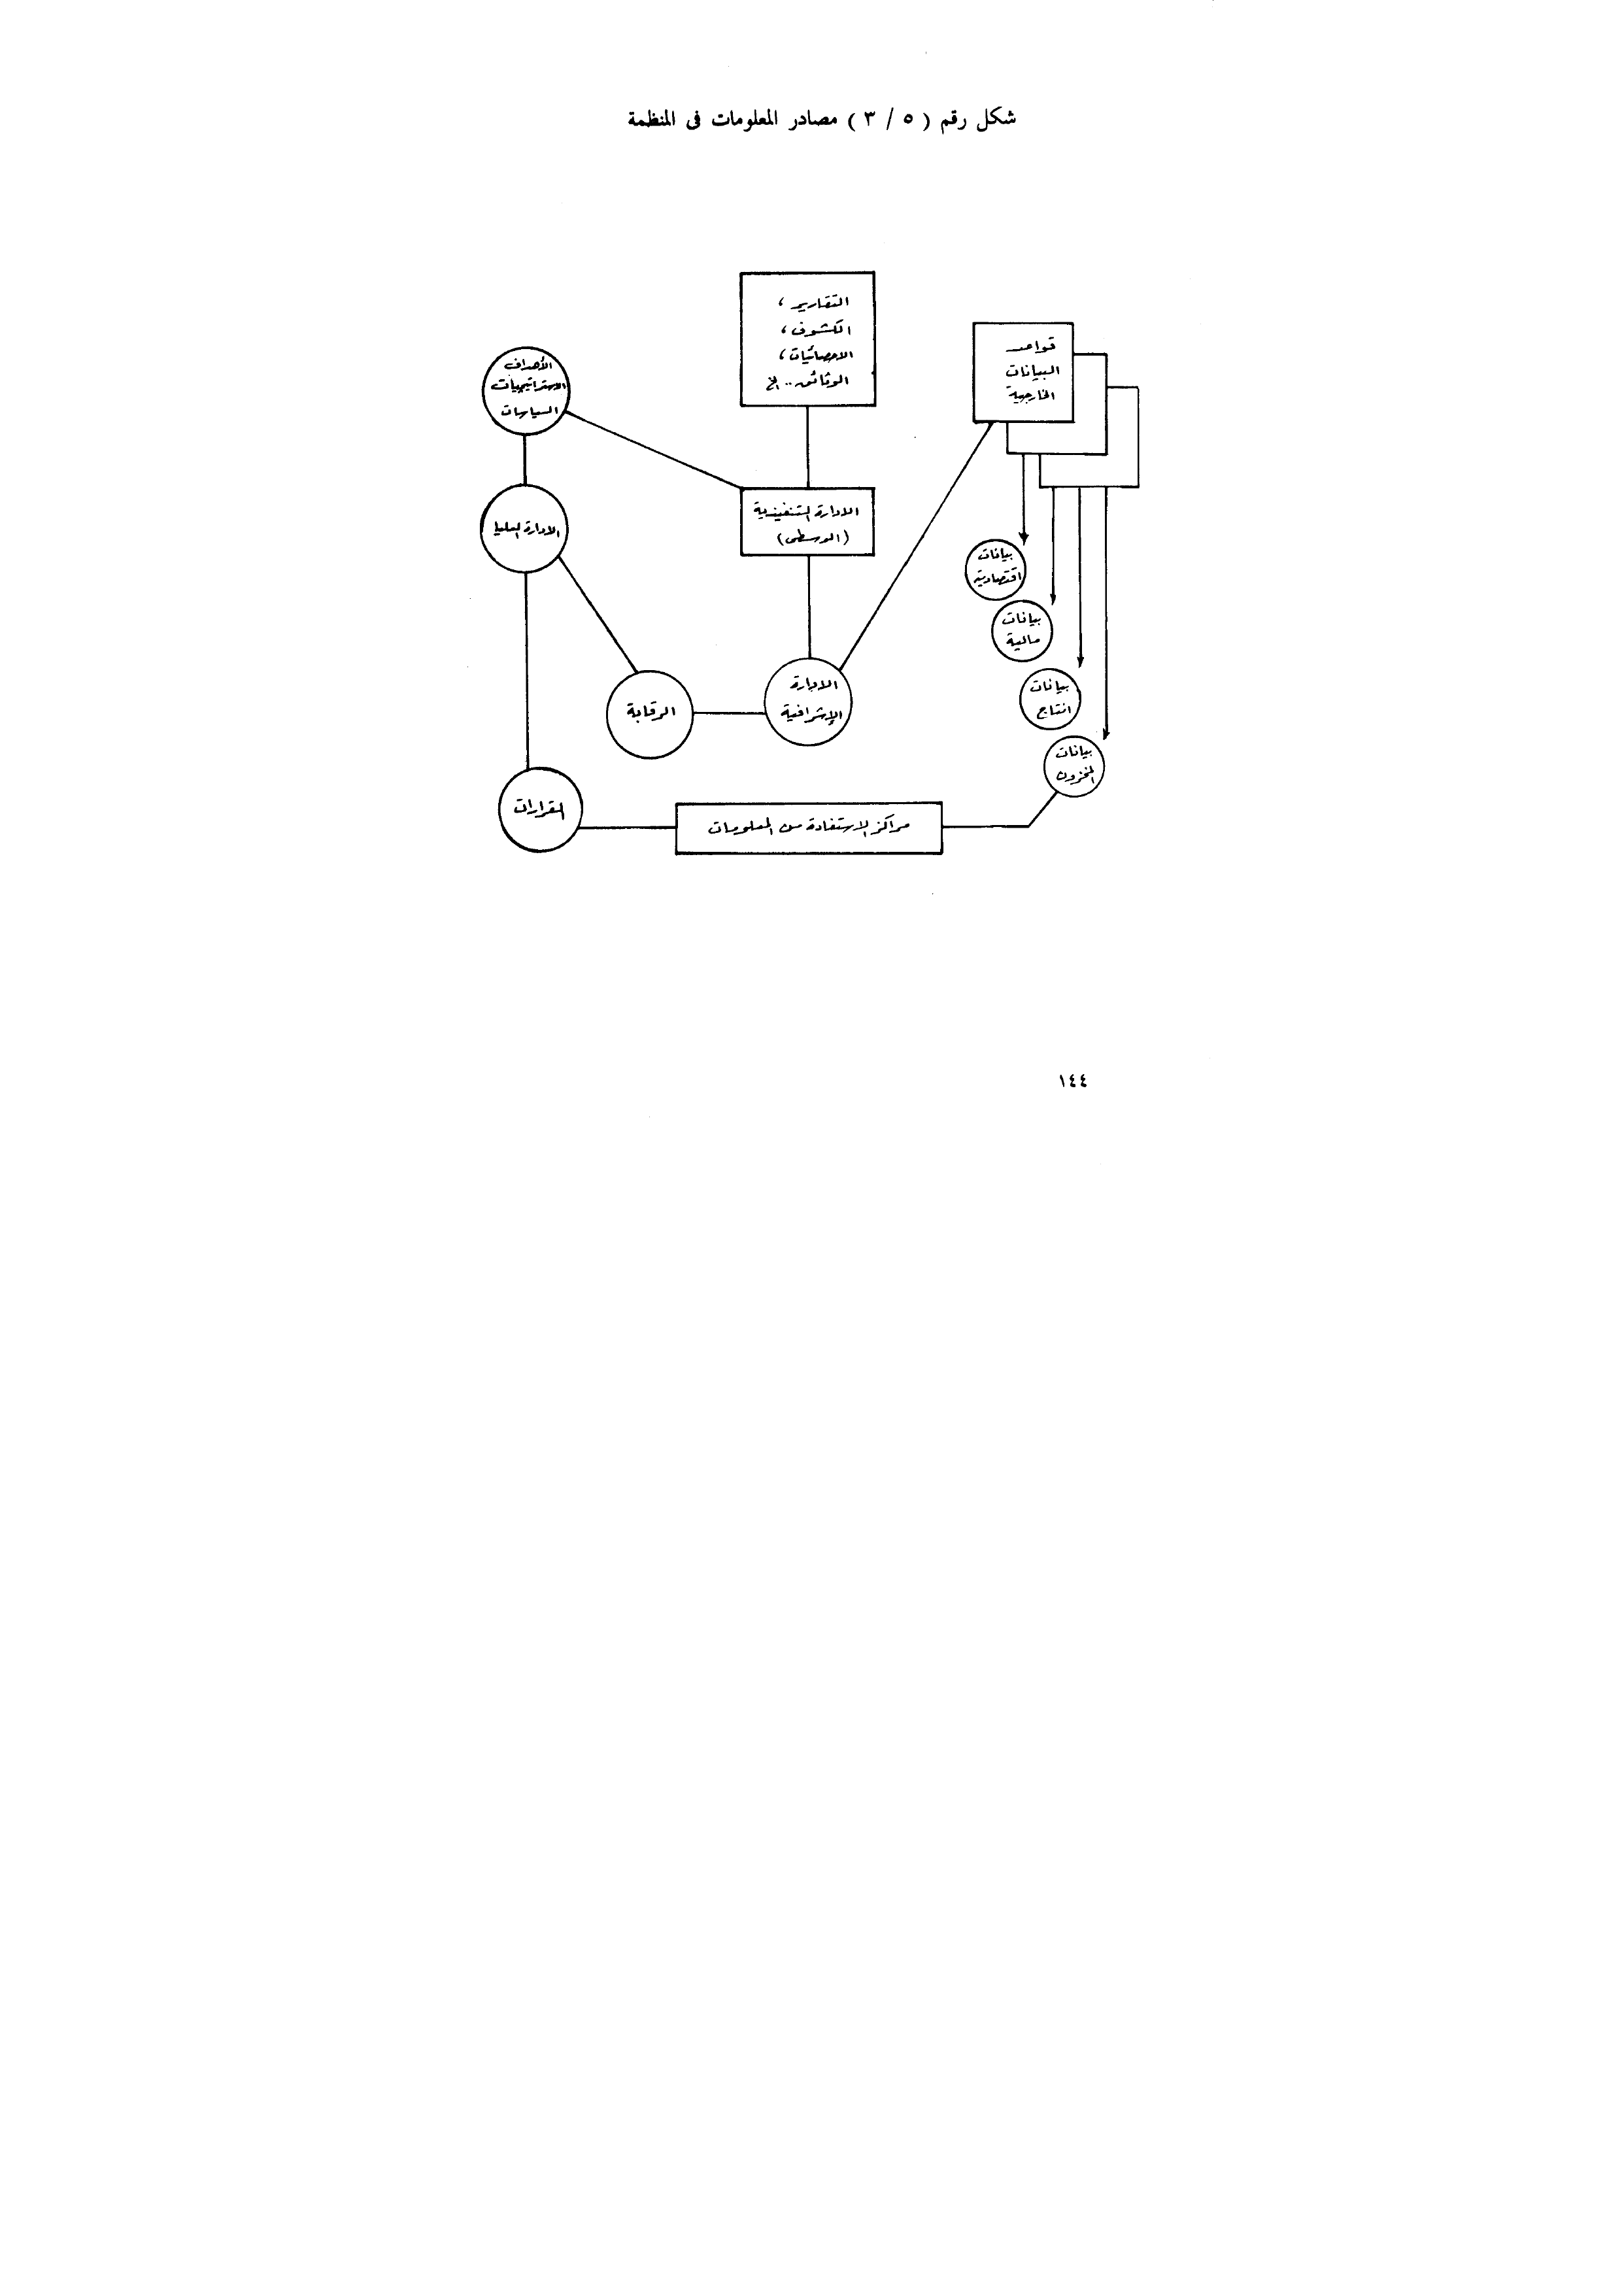 شكل رقم ( ٥ / ٣ ) مصادر المعلومات فى المنظمة
التقارير ،
الكشوف ،
الاحصائيات ،
الوثائق .. الخ
قواعد
البيانات
الخارجية
الأهداف
الاستراتيجيات
السياسات
الادارة التنفيذية
(الوسطى)
الادارة العليا
بيانات
اقتصادية
بيانات
مالية
بيانات
انتاج
بيانات
المخزون
الادارة
الإشرافية
الرقابة
القرارات
مراكز الاستفادة من المعلومات
١٤٤